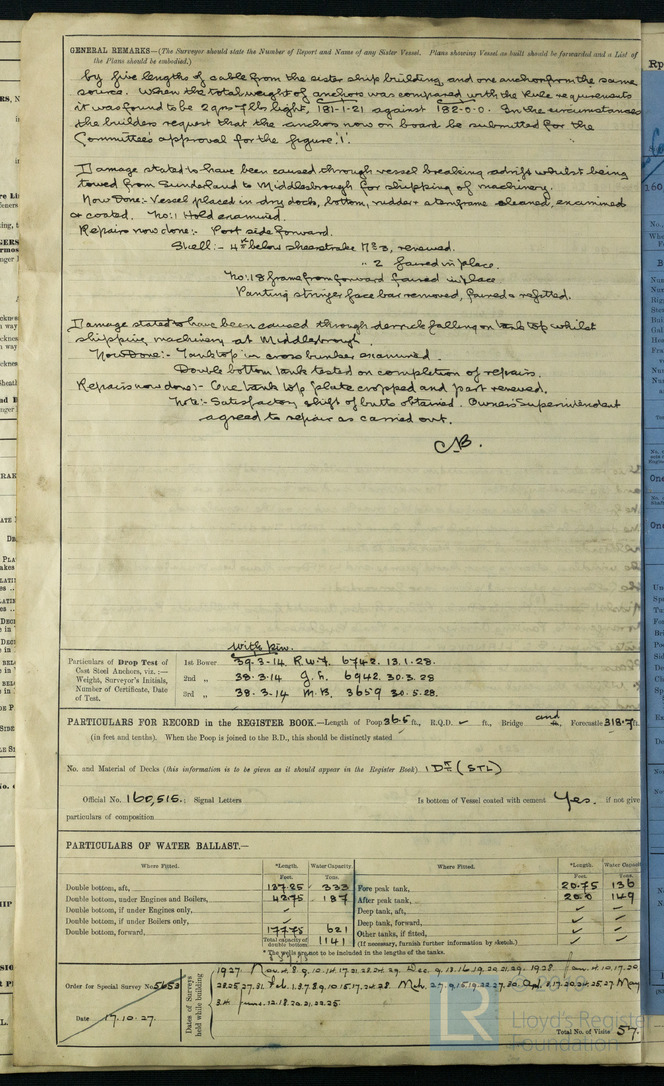 GENERAL REMARKS—(The Surveyor should state the Number of Report and Name of any Sister Vessel. Plans showing Vessel as built should be forwarded and a List of
the Plans should be embodied.)
by five lengths of cable from the sister ship building and one anchor from the same
source. When the total weight of anchors was compared with the Rule requirements
it was found to be 2 qrs 7 lbs light, 181-1-21 against 182-0-0. In the circumstances
the builders request that the anchors now on board be submitted for the
Committee's approval for the figure '1'.
Damage stated to have been caused through vessel breaking adrift whilst being
towed from Sunderland to Middlesbrough for shipping of machinery.
Now Done:- Vessel placed in dry dock, bottom, rudder & sternframe cleaned, examined
& coated. No:1 Hold examined.
Repairs now done:- Port side forward.
Shell:- 4th below sheerstrake No 3, renewed.
" 2 faired in place.
No:18 frame from forward faired in place
Panting stringer face bar removed, faired & refitted.
Damage stated to have been caused through derrick falling on tank top whilst
shipping machinery at Middlesbrough.
Now Done:- Tank top in cross bunker examined.
Double bottom tank tested on completion of repairs.
Repairs now done:- One tank top plate cropped and part renewed.
Note:- Satisfactory shift of butts obtained. Owners Superintendent
agreed to repair as carried out.
Particulars of Drop Test of
Cast Steel Anchors, viz.:—
Weight, Surveyor's Initials,
Number of Certificate, Date
of Test.
with pin.
1st Bower 39-3-14 R.W.Y. 6742 13.1.28.
2nd „ 38-3-14 J.L. 6942 30.3.28
3rd „ 38-3-14 M.B. 3659 30.5.28.
PARTICULARS FOR RECORD in the REGISTER BOOK.—Length of Poop 36.5 ft., R.Q.D. ✓ ft., Bridge and ft., Forecastle 318.7 ft.
(in feet and tenths). When the Poop is joined to the B.D., this should be distinctly stated
No. and Material of Decks (this information is to be given as it should appear in the Register Book) 1 Dk (STL)
Official No. 160,515.; Signal Letters Is bottom of Vessel coated with cement Yes. if not give
particulars of composition
PARTICULARS OF WATER BALLAST.—
Where Fitted. *Length. Water Capacity Where Fitted. *Length. Water Capacity
Feet. Tons. Feet. Tons.
Double bottom, aft, 137.25 333 Fore peak tank, 20.75 136
Double bottom, under Engines and Boilers, 42.75 187 After peak tank, 20.0 149
Double bottom, if under Engines only, ✓ Deep tank, aft, ✓ ✓
Double bottom, if under Boilers only, ✓ Deep tank, forward, ✓ ✓
Double bottom, forward, 177.75 621 Other tanks, if fitted, ✓ ✓
Total capacity of double bottom 1141 (If necessary, furnish further information by sketch.)
* The wells are not to be included in the lengths of the tanks.
Order for Special Survey No. 5653
Date 17.10.27.
Dates of Surveys held while building
1927. Nov. 4. 8. 9. 10. 14. 17. 21. 23. 24. 29. Dec. 9. 13. 16. 19. 20. 21. 29. 1928 Jan. 4. 10. 17. 20
23. 25. 27. 31. Feb. 1. 3. 7. 8. 9. 10. 15. 17. 24. 28. Mch. 2. 7. 9. 15. 19. 22. 27. 30. Apl. 3. 17. 20. 24. 25. 27 May
3. 14. June. 12. 18. 20. 21. 22. 25.
Total No. of Visits 57.
LR
Lloyd's Register
Foundation